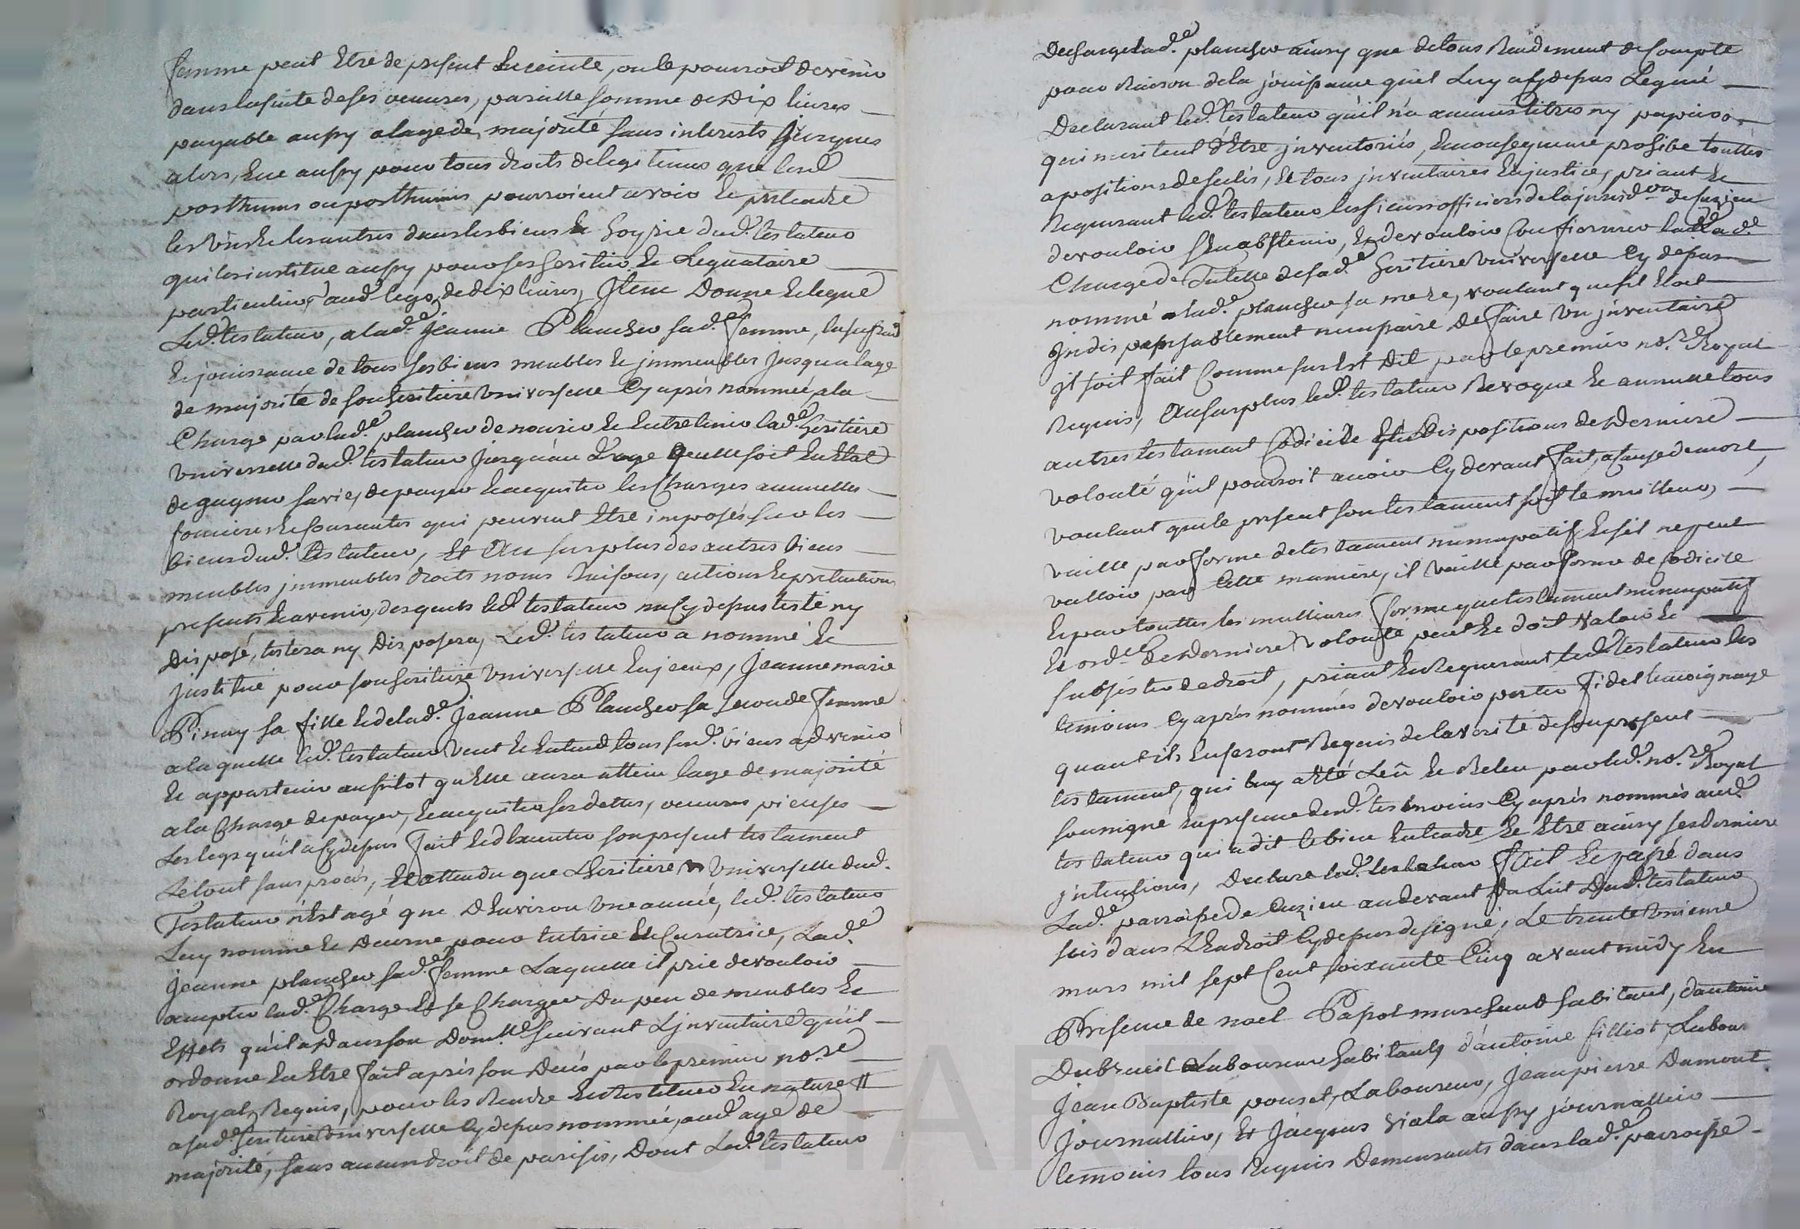 femme peut Etre de present Enceinte, ou le pourroit devenir
dans la suite de ses oeuvres, pareille somme de Dix livres
payable aussy a lage de majorité sans interests jusques
alors, Et ce aussy pour tous droits de legitimes que lesd
posthumes ou posthumes pourroient avoir Et pretendre
les Uns Et les autres dans les biens Et hoyrie dud. testateur
qui les institue aussy pour ses heritiers Et Legataires
particuliers, aud. legs de dix livres, Item Donne Et legue
Led. testateur, a lad.e Jeanne Plancher sad.e femme,
Et jouissance de tous ses biens meubles Et immeubles jusqua lage
de majorité de son heritiere Universelle Cy après nommée, a la
Charge par lad.e plancher de nourrir Et Entretenir lad.e heritiere
Universelle dud. testateur jusqu'au Lage quelle soit En Etat
de gagner sa vie, de payer Et acquitter les Charges annuelles
foncieres Et courantes qui peuvent Etre imposés sur les
biens dud. testateur, Et Au surplus des autres biens
meubles immeubles droits noms Raisons, actions Et pretentions
presents Et avenir, desquels led. testateur na Cy depus testé ny
Disposé, testera ny Disposera, Led. testateur a nommé Et
institue pour son heritiere Universelle Jeanne marie
Pinay sa fille Et de lad.e Jeanne Plancher sa seconde femme
a laquelle led. testateur Veut Et Entend tous sesd. biens advenir
Et appartenir aussitot qu'Elle aura attein lage de majorité
a la Charge de payer, Et acquitter ses dettes, oeuvres pieuses
Les legs qu'il a Cy depus fait Et d'Executer son present testament
Le tout sans proces, Et attendu que Lheritiere Universelle dud.
Testateur n'est agé que D'Environ Une année, led. testateur
Luy nomme Et Decerne pour tutrice Et Curatrice, Lad.e
Jeanne plancher sad.e femme Laquelle il prie de vouloir
accepter lad.e Charge Et se Charger Du peu de meubles Et
Effets qu'il a dans son Dom.lle suivant Linventaire qu'il
ordonne En Etre fait après son Decés par le premier no.re
Royal, Requis, pour les Rendre Et restituer En nature
a sad. heritiere Universelle Cy depus nommée, aud. age de
majorité, sans aucun droit de parisis, Dont Led. testateur
Decharge Lad.e plancher ainsy que de tous Rendement de Compte
pour Raison de la jouissance qu'il Luy a Cy depus Legué
Declarant led. testateur qu'il n'a aucuns titres ny papiers
qui meritent d'Etre inventoriés, Em consequence prohibe touttes
apositions de scelés, Et tous inventaires En justice, priant Et
Requerant led. testateur les sieurs officiers de la jurisd.on de
de vouloir sEn abstenir, Et de vouloir Confirmer lad.e
Charge de Tutelle de sad.e heritiere Universelle Cy depus
nommé a lad.e plancher sa mere, voulant que s'il Etoit
Indispensablement necessaire De faire Un inventaire
Il soit fait Comme sus Est Dit par le premier no.re Royal
Requis, Au surplus led. testateur Revoque Et annulle tous
autres testament Codicile Et Dispositions de Derniere
volonté qu'il pourroit avoir Cy devant fait, a Cause de mort,
voulant que le present son testament soit le meilleur,
vaille par forme de testament nunupatif, Et s'il ne peut
valloir par Cette maniere, il Vaille par forme de Codicile
Et par touttes les meilleures forme que testament nunupatif
Et ord.ce De Derniere volonté peut Et doit Valoir Et
subsister de droit, priant En Requerant led. testateur les
temoins Cy après nommés de vouloir porter fidel temoignage
quand ils En seront Requis de la verité de son present
testament, qui luy a Eté Leü Et Releu par led. no.re Royal
soussigné En presence desd. temoins Cy après nommés aud.
testateur qui a dit le bien Entendre Et Etre ainsy ses dernieres
jntentions, Declare led. testateur fait Et passé dans
Lad. parroisse de Cuzieu au devant Du Lit Dud. testateur
sis dans Lendroit Cy depus designé, Le trente Unieme
mars mil sept Cent soixante Cinq avant midy En
Presence de noel Papot marchand habitant, d'antoine
Dubrueil Laboureur habitants d'antoine filliot Labour
Jean Baptiste pouset, Laboureur, Jean pierre Dumont
Journallier, Et Jacques Viala aussy journallier
temoins tous Requis Demeurants dans lad.e parroisse